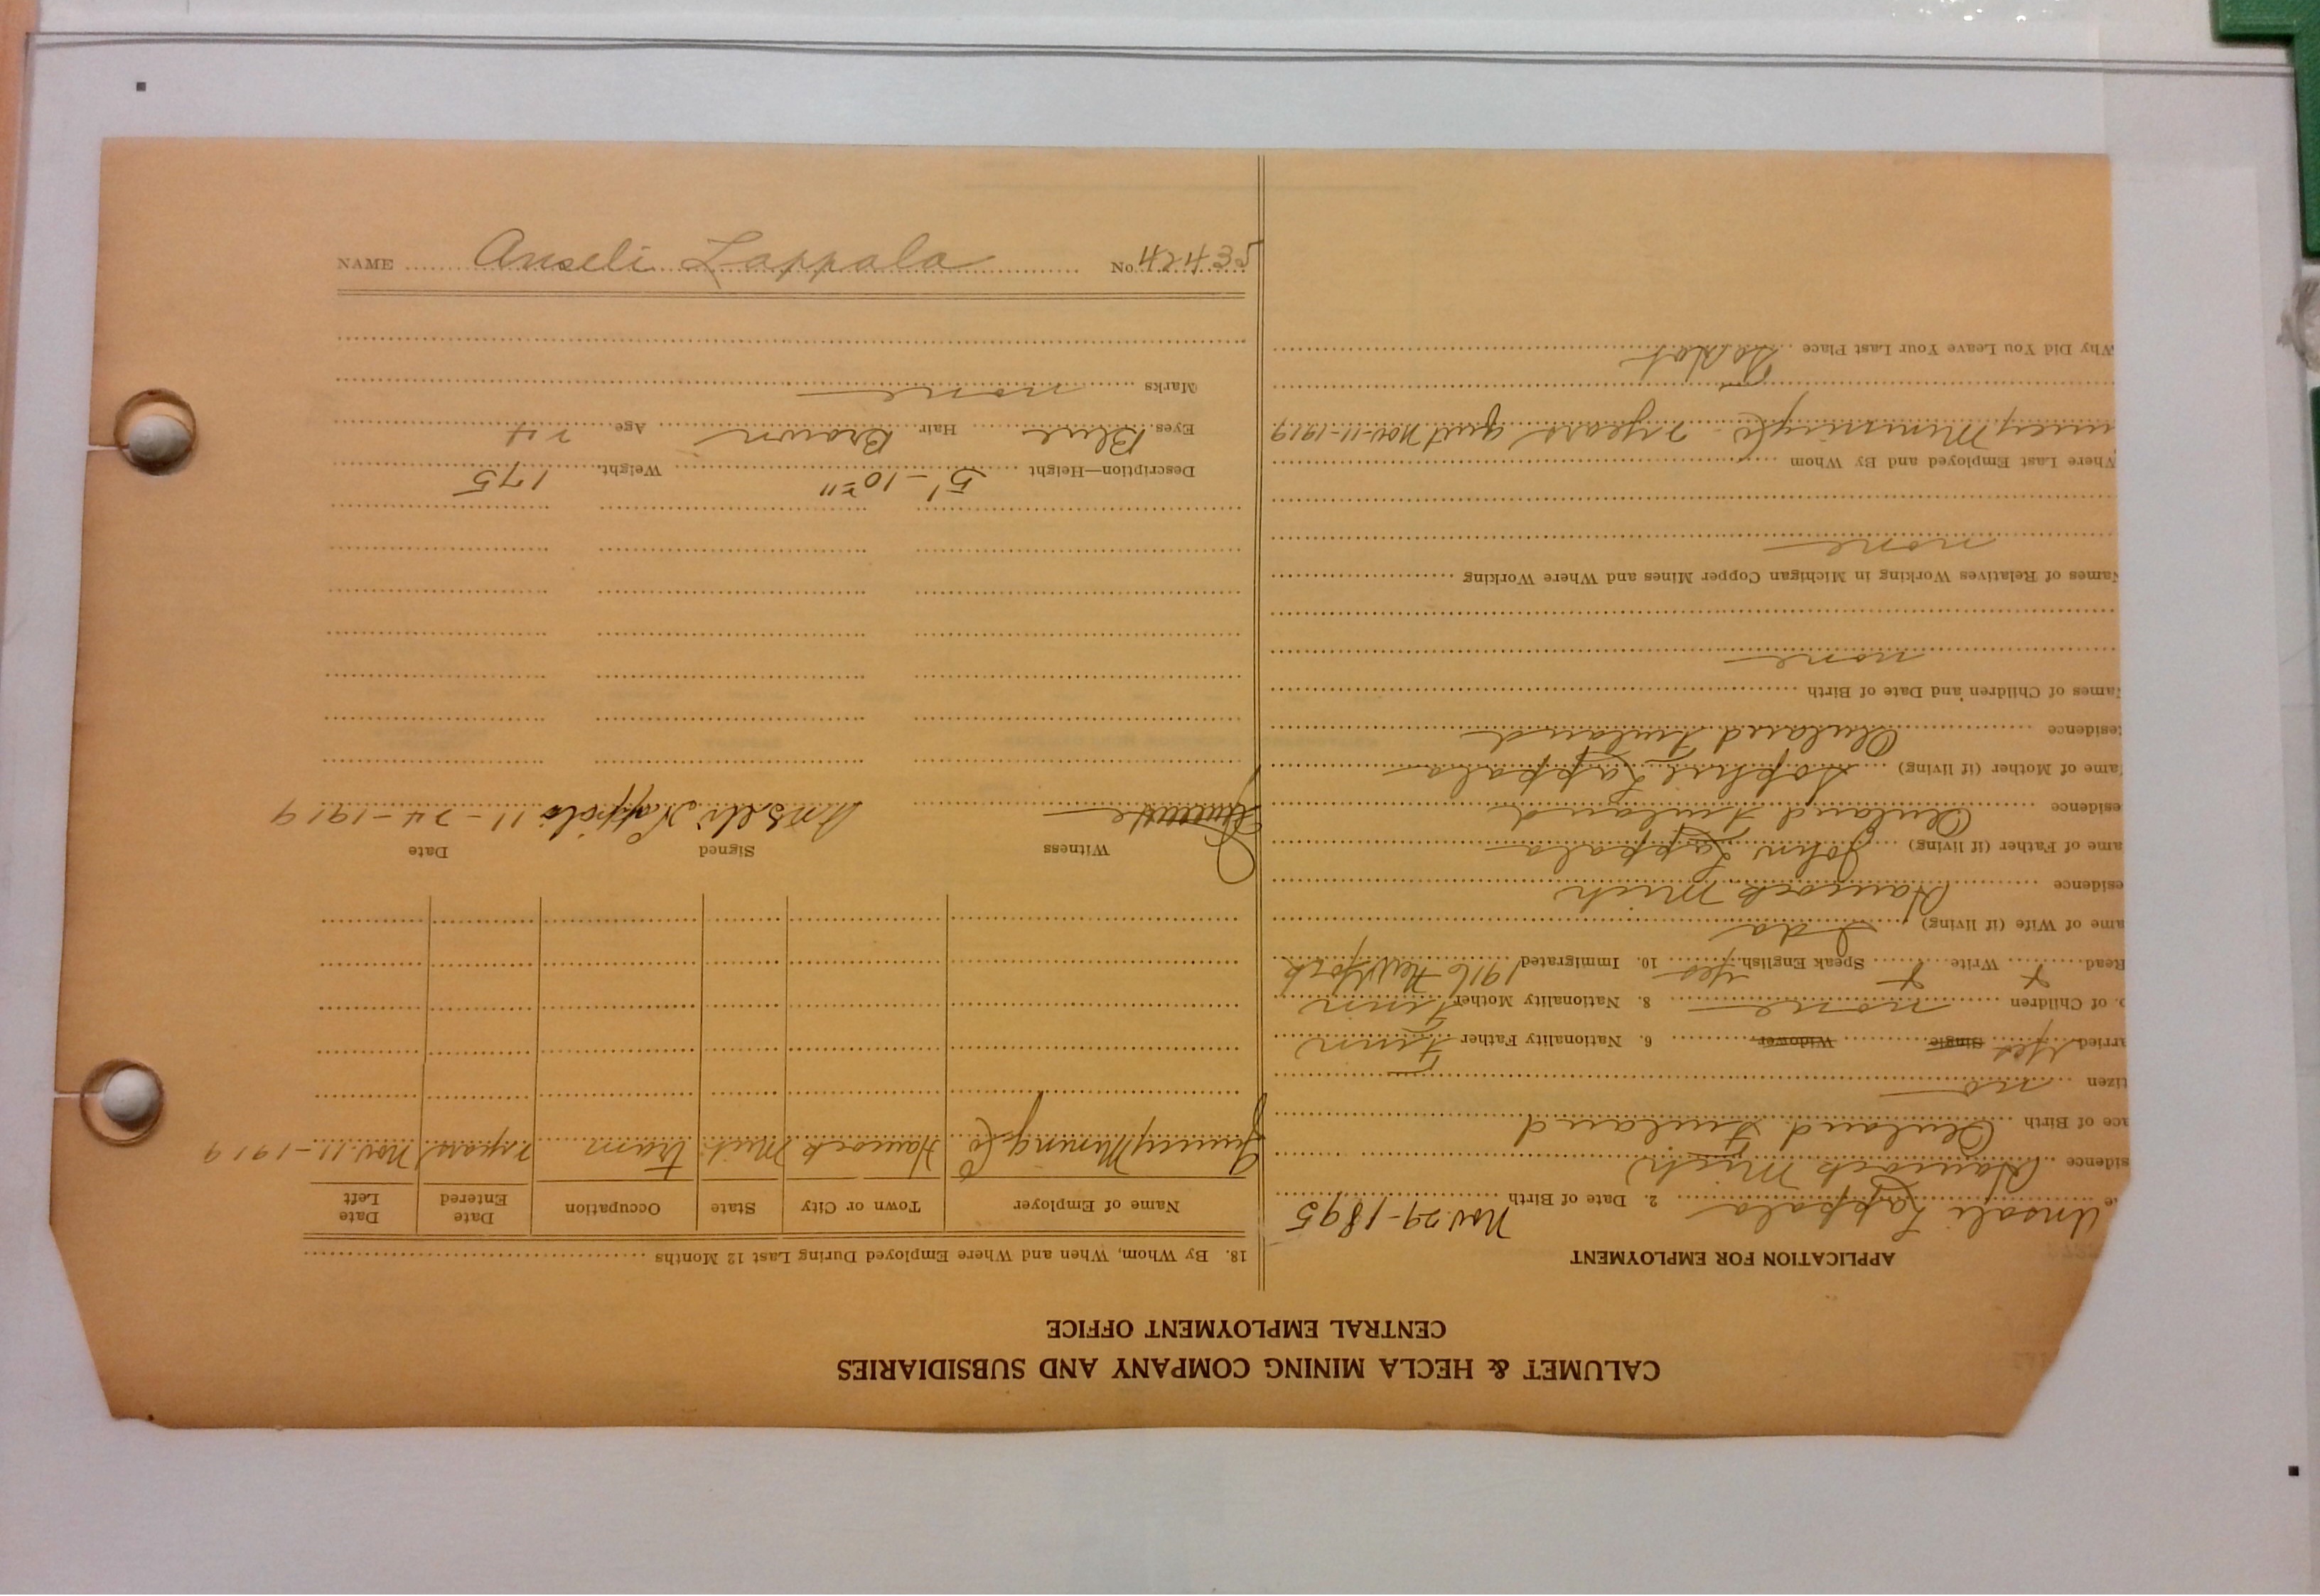 CALUMET & HECLA MINING COMPANY AND SUBSIDIARIES
CENTRAL EMPLOYMENT OFFICE
APPLICATION FOR EMPLOYMENT
e Anseli Lappala 2. Date of Birth Nov. 29-1895
sidence Hancock Mich
ace of Birth Finland
tizen no
arried yes Single Widower 6. Nationality Father Finn
o. of Children none 8. Nationality Mother Finn
Read x Write x Speak English yes 10. Immigrated 1916 New York
ame of Wife (if living) Ida
esidence Hancock Mich
ame of Father (if living) John Lappala
esidence Finland
ame of Mother (if living) Sophie Lappala
esidence Finland
ames of Children and Date of Birth
none
ames of Relatives Working in Michigan Copper Mines and Where Working
none
Where Last Employed and By Whom
uincy Mining Co 2 years quit Nov-11-1919
Why Did You Leave Your Last Place
18. By Whom, When and Where Employed During Last 12 Months
Name of Employer Town or City State Occupation Date Entered Date Left
Quincy Mining Co Hancock Mich tram 2 years Nov. 11-1919
Witness Signed Date
Anseli Lappala 11-24-1919
Description—Height 5'-10" Weight 175
Eyes Blue Hair Brown Age 24
Marks none
NAME Anseli Lappala No. 42435